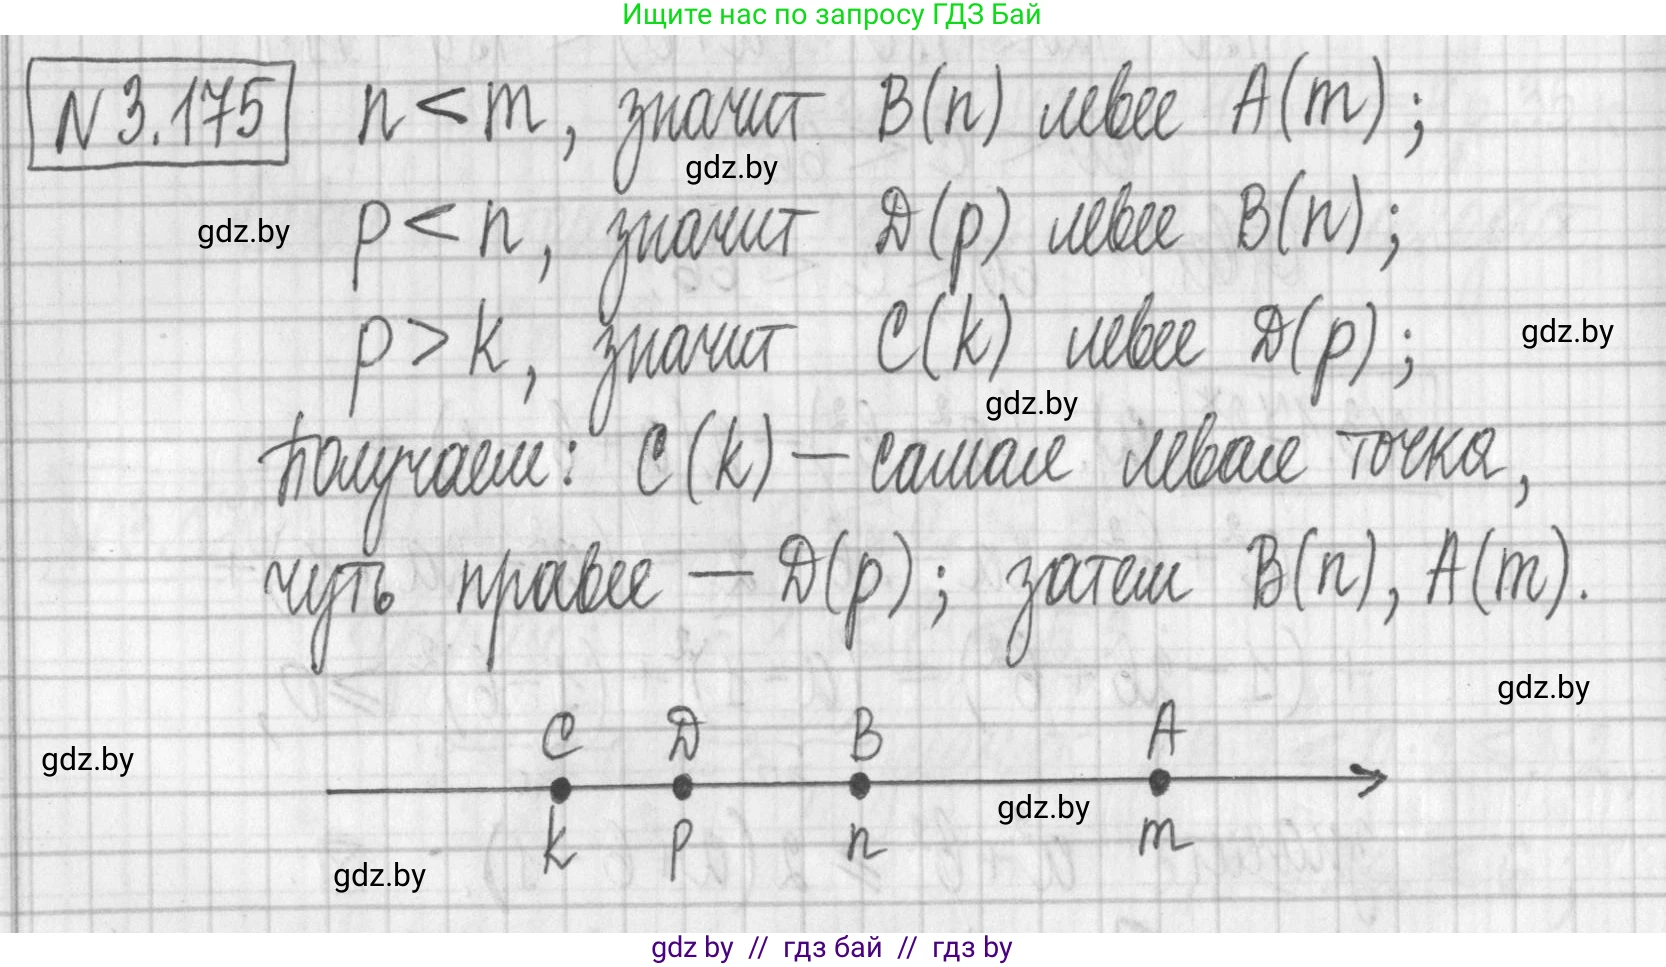 Ищите нас по запросу ГДЗ Бай
N 3.175 n < m, значит B(n) левее A(m);
gdz.by
gdz.by p < n, значит D(p) левее B(n);
p > k, значит C(k) левее D(p); gdz.by
gdz.by
Получаем: C(k) – самая левая точка,
чуть правее – D(p); затем B(n), A(m).
gdz.by
C D B A
gdz.by
gdz.by
k p n m
gdz.by
gdz by // гдз бай // гдз by